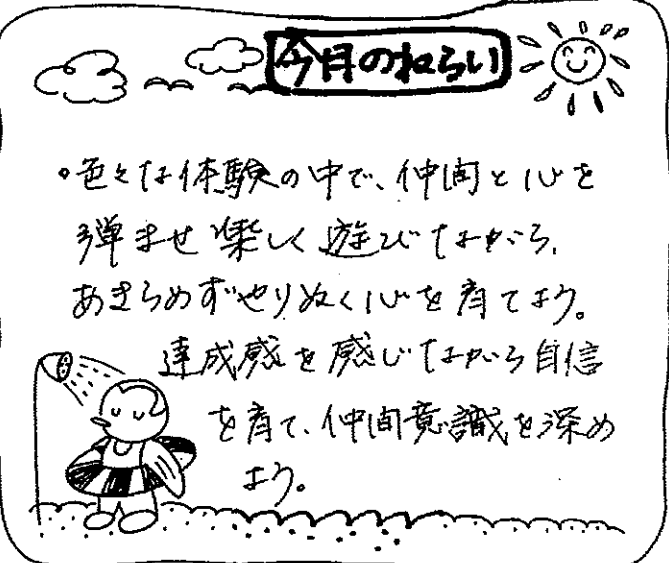 今月のねらい
・色々な体験の中で、仲間と心を
弾ませ楽しく遊びながら、
あきらめずやりぬく心を育てよう。
達成感を感じながら自信
を育て、仲間意識を深め
よう。